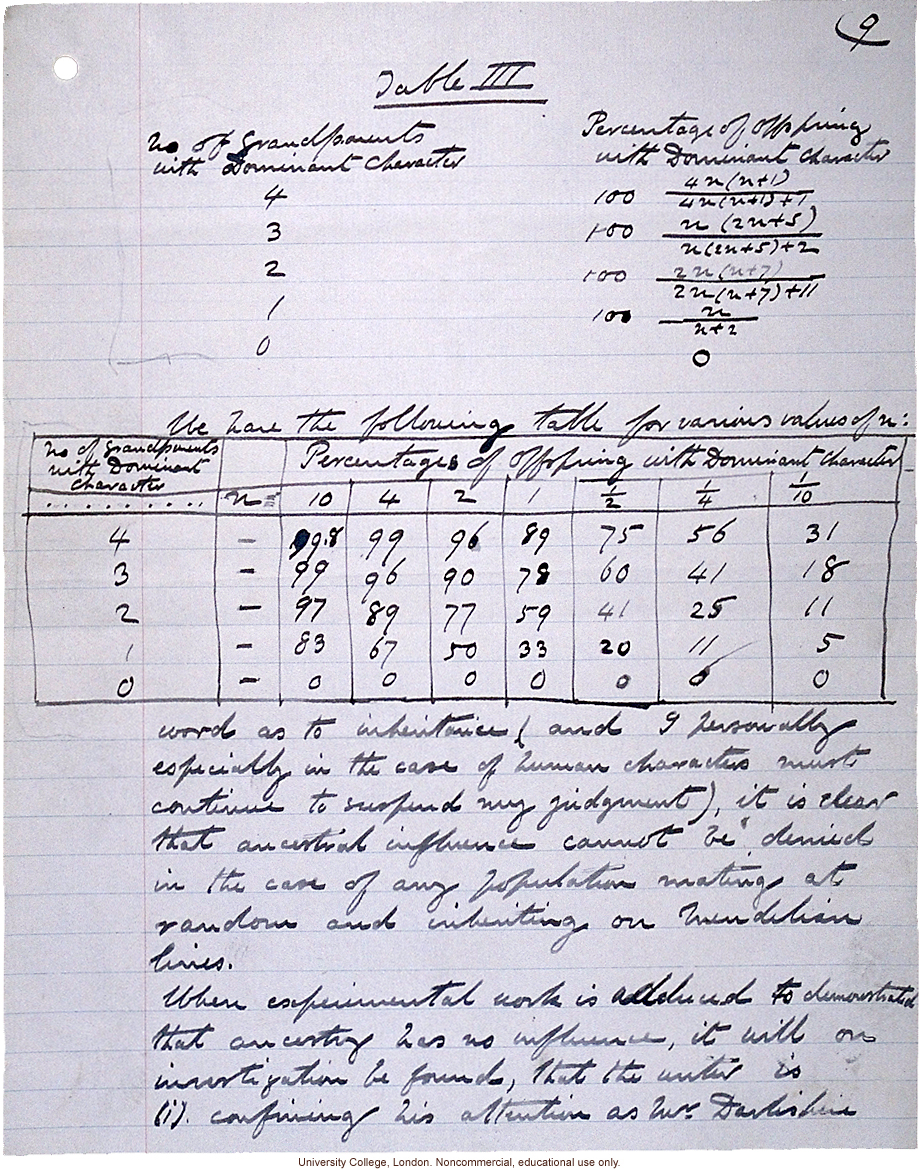 9
Table III
No of Grandparents with Dominant Character
Percentage of Offspring with Dominant Character
4 100 4n(n+1) / 4n(n+1)+1
3 100 n(2n+5) / n(2n+5)+2
2 100 2n(n+7) / 2n(n+7)+11
1 100 n / n+2
0 0
We have the following table for various values of n:
No of Grandparents with Dominant Character . . . . . . . . .
Percentages of offspring with Dominant Character
n = 10 4 2 1 1/2 1/4 1/10
4 – 99.8 99 96 89 75 56 31
3 – 99 96 90 78 60 41 18
2 – 97 89 77 59 41 25 11
1 – 83 67 50 33 20 11 5
0 – 0 0 0 0 0 0 0
word as to inheritance (and I personally
especially in the case of human characters must
continue to suspend my judgment), it is clear
that ancestral influence cannot be denied
in the case of any population mating at
random and inheriting on Mendelian
lines.
When experimental work is adduced to demonstrate
that ancestry has no influence, it will on
investigation be found, that the writer is
(i). confining his attention as Mr Darbishire
University College, London. Noncommercial, educational use only.